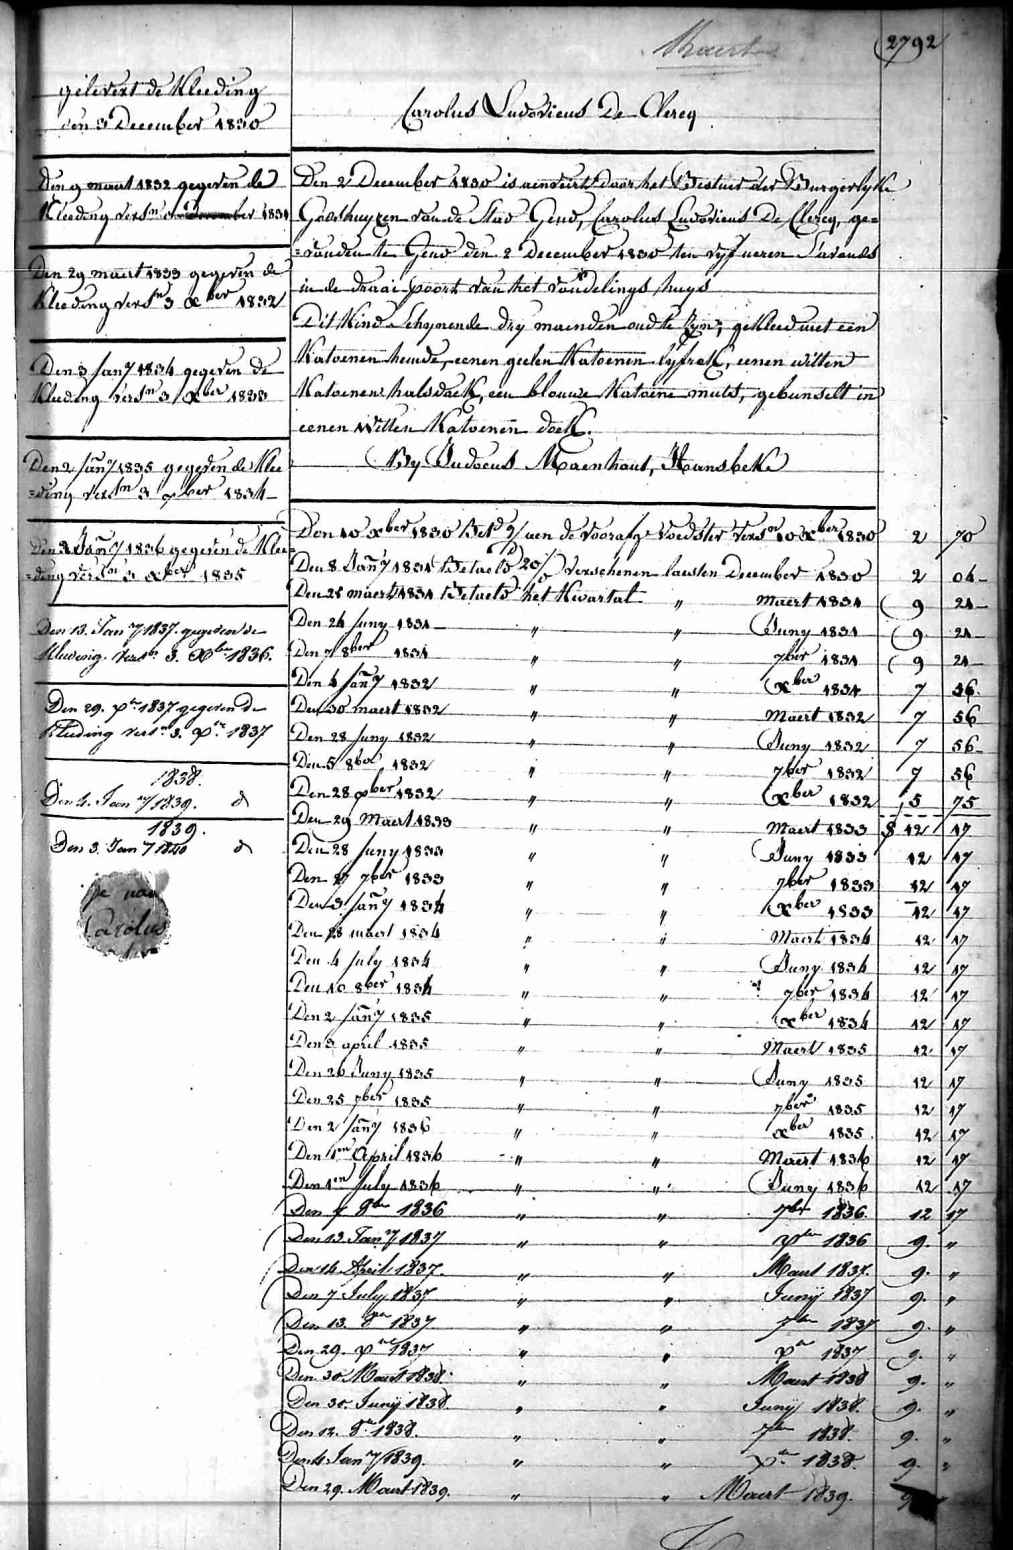 Maert
2792
gelevert de Kleeding
den 3 December 1830
Carolus Ludovicus De Clercq
Den 9 maert 1832 gegeven de
Kleeding versn december 1831
Den 29 maert 1833 gegeven de
Kleeding versn 3 xber 1832
Den 3 Jany 1834 gegeven de
Kleeding versn 3 xber 1833
Den 2 Jany 1835 gegeven de Klee
=ding versn 3 xber 1834
Den 2 Jany 1836 gegeven de Klee=
=ding versn 3 xber 1835
Den 13. Jany 1837. gegeven de
Kleeding. versn 3. Xber 1836.
Den 29. xbr 1837 gegeven de
Kleeding versn 3. xbr 1837
1838.
Den 4. Jany 1839. d
1839.
Den 3. Jany 1840 d
je
Carolus
Den 2 December 1830 is aenveirt door het Bestuer der Burgerlyke
Godshuyzen van de Stad Gend, Carolus Ludovicus De Clercq, ge=
=vonden te Gend den 2 December 1830 ten vyf ueren s'avends
in de draai poort van het vondelings huys
Dit kind schynende dry maenden oud te zyn, gekleed met een
Katoenen hemde, eenen geelen Katoenen lyfrok, eenen witten
Katoenen halsdoek, een blouwe Katoene muts, gebunselt in
eenen witten Katoenen doek.
By Judocus Maenhout, Hansbeke
Den 10 xber 1830 Betd aen de voorafge voedster versn 10 xber 1830 2 70
Den 8 Jany 1831 Betaeld 20/ verschenen laesten December 1830 2 04
Den 25 maert 1831 Betaeld het Kwartal " Maert 1831 9 24
Den 24 Juny 1831 " " Juny 1831 9 24
Den 7 8ber 1831 " " 7ber 1831 9 24
Den 4 Jany 1832 " " xber 1831 7 56
Den 30 maert 1832 " " Maert 1832 7 56
Den 28 Juny 1832 " " Juny 1832 7 56
Den 5 8ber 1832 " " 7ber 1832 7 56
Den 28 xber 1832 " " xber 1832 5 75
Den 29 Maert 1833 " " Maert 1833 12 17
Den 28 Juny 1833 " " Juny 1833 12 17
Den 27 7ber 1833 " " 7ber 1833 12 17
Den 3 Jany 1834 " " xber 1833 12 17
Den 28 maert 1834 " " Maert 1834 12 17
Den 4 July 1834 " " Juny 1834 12 17
Den 10 8ber 1834 " " 7ber 1834 12 17
Den 2 Jany 1835 " " xber 1834 12 17
Den 3 april 1835 " " Maert 1835 12 17
Den 26 Juny 1835 " " Juny 1835 12 17
Den 25 7ber 1835 " " 7ber 1835 12 17
Den 2 Jany 1836 " " xber 1835 12 17
Den 1en April 1836 " " Maert 1836 12 17
Den 1en July 1836 " " Juny 1836 12 17
Den 7 8bre 1836 " " 7ber 1836 12 17
Den 13 Jany 1837 " " xbre 1836 9. "
Den 14 April 1837. " " Maert 1837. 9. "
Den 7 July 1837 " " Junÿ 1837 9. "
Den 13. 8bre 1837 " " 7bre 1837 9. "
Den 29. xbre 1837 " " xbre 1837 9. "
Den 30. Maert 1838. " " Maert 1838 9. "
Den 30. Junÿ 1838. " " Junÿ 1838. 9. "
Den 12. 8bre 1838. " " 7bre 1838 9. "
Den 4 Jany 1839. " " xbre 1838. 9. "
Den 29. Maert 1839. " " Maert 1839. 9